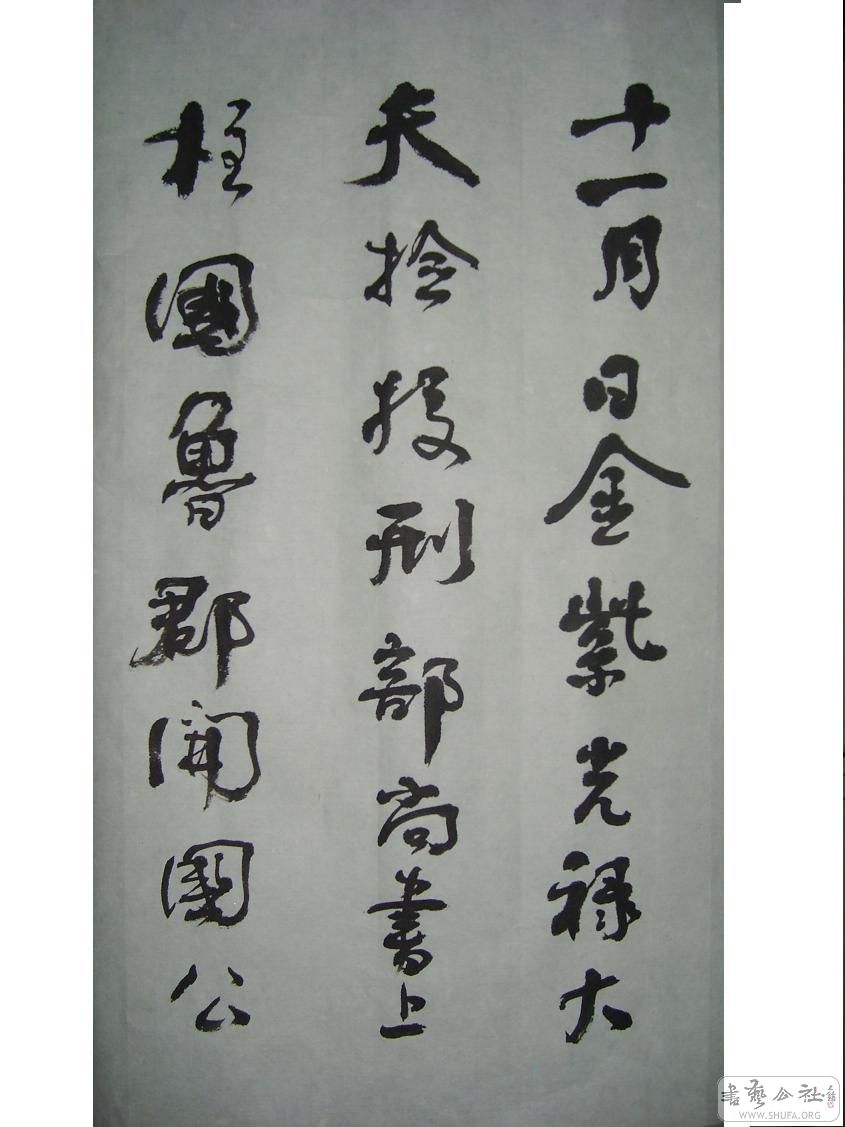 十一月日金紫光禄大
夫捡挍刑部尚書上
柱國魯郡開國公
書藝公社
WWW.SHUFA.ORG